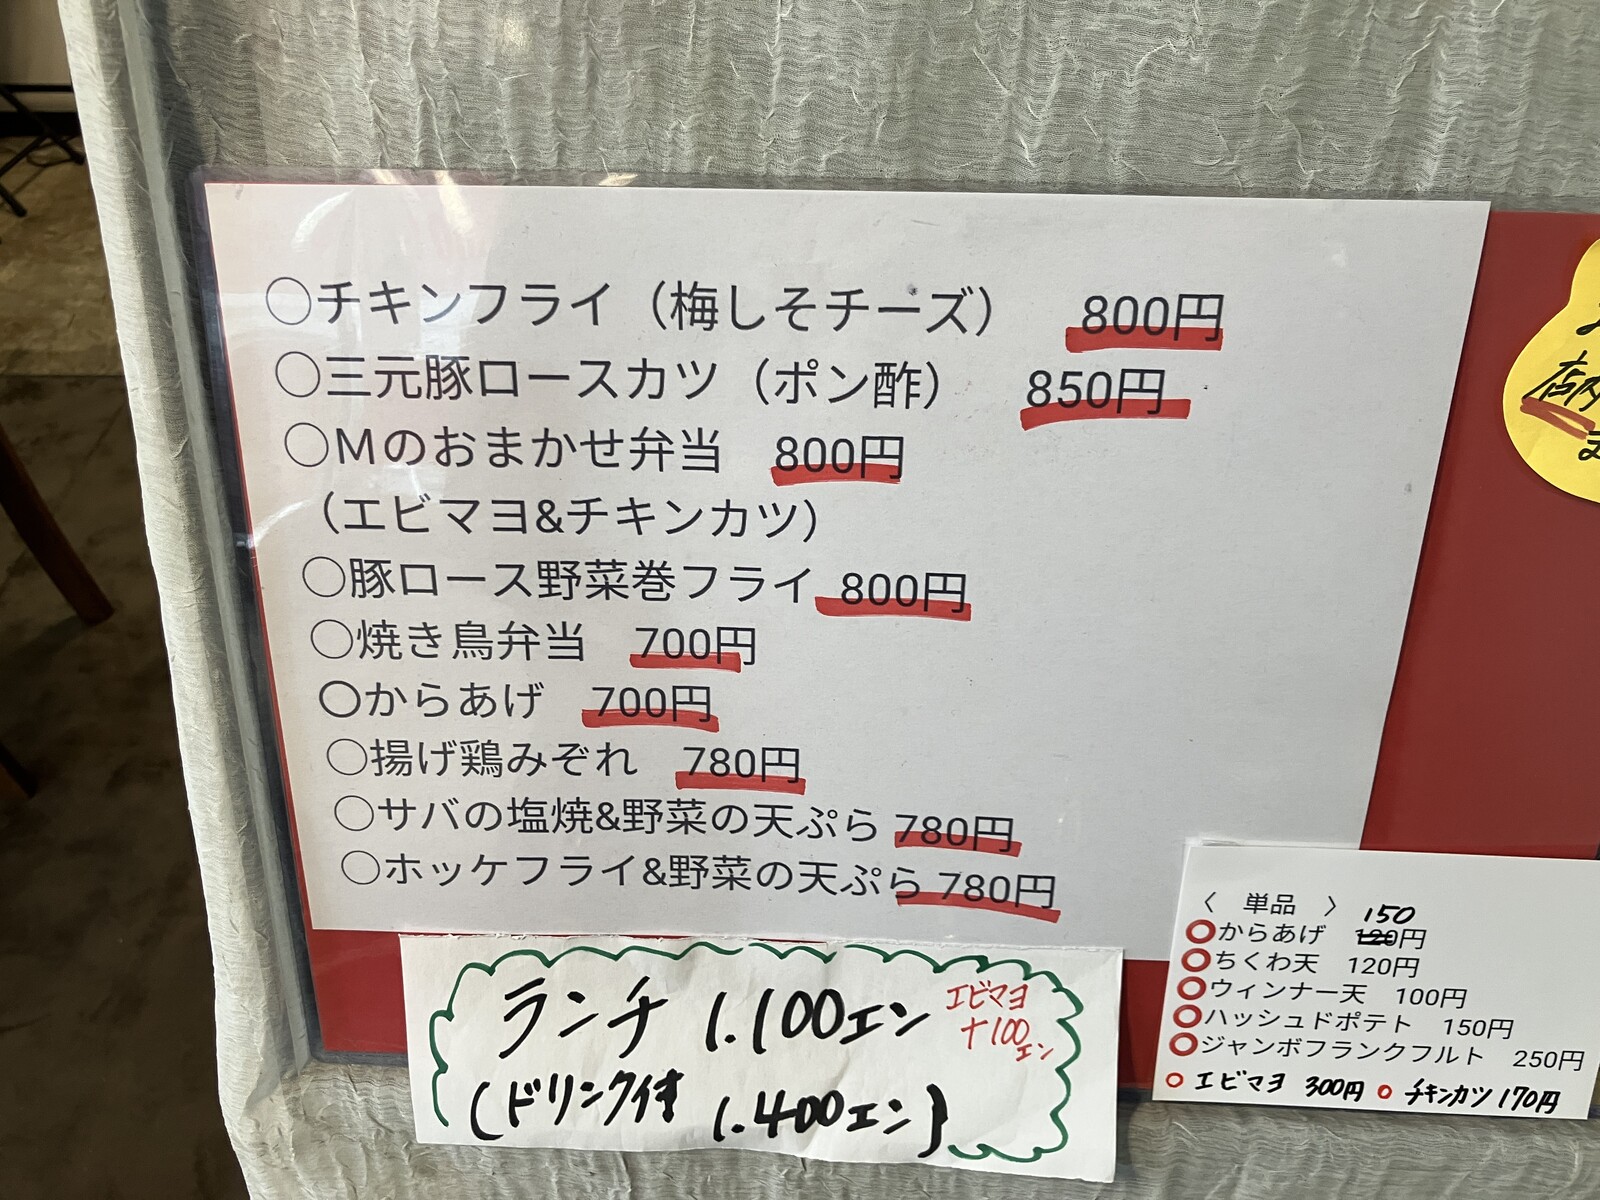 〇チキンフライ（梅しそチーズ）　800円
〇三元豚ロースカツ（ポン酢）　850円
〇Mのおまかせ弁当　800円
（エビマヨ&チキンカツ）
〇豚ロース野菜巻フライ 800円
〇焼き鳥弁当　700円
〇からあげ　700円
〇揚げ鶏みぞれ　780円
〇サバの塩焼&野菜の天ぷら 780円
〇ホッケフライ&野菜の天ぷら 780円
ランチ 1.100エン
エビマヨ
+100
エン
(ドリンク付 1.400エン)
店内
〈　単品　〉
150
〇からあげ　120円
〇ちくわ天　120円
〇ウィンナー天　100円
〇ハッシュドポテト　150円
〇ジャンボフランクフルト　250円
〇エビマヨ 300円 〇チキンカツ 170円